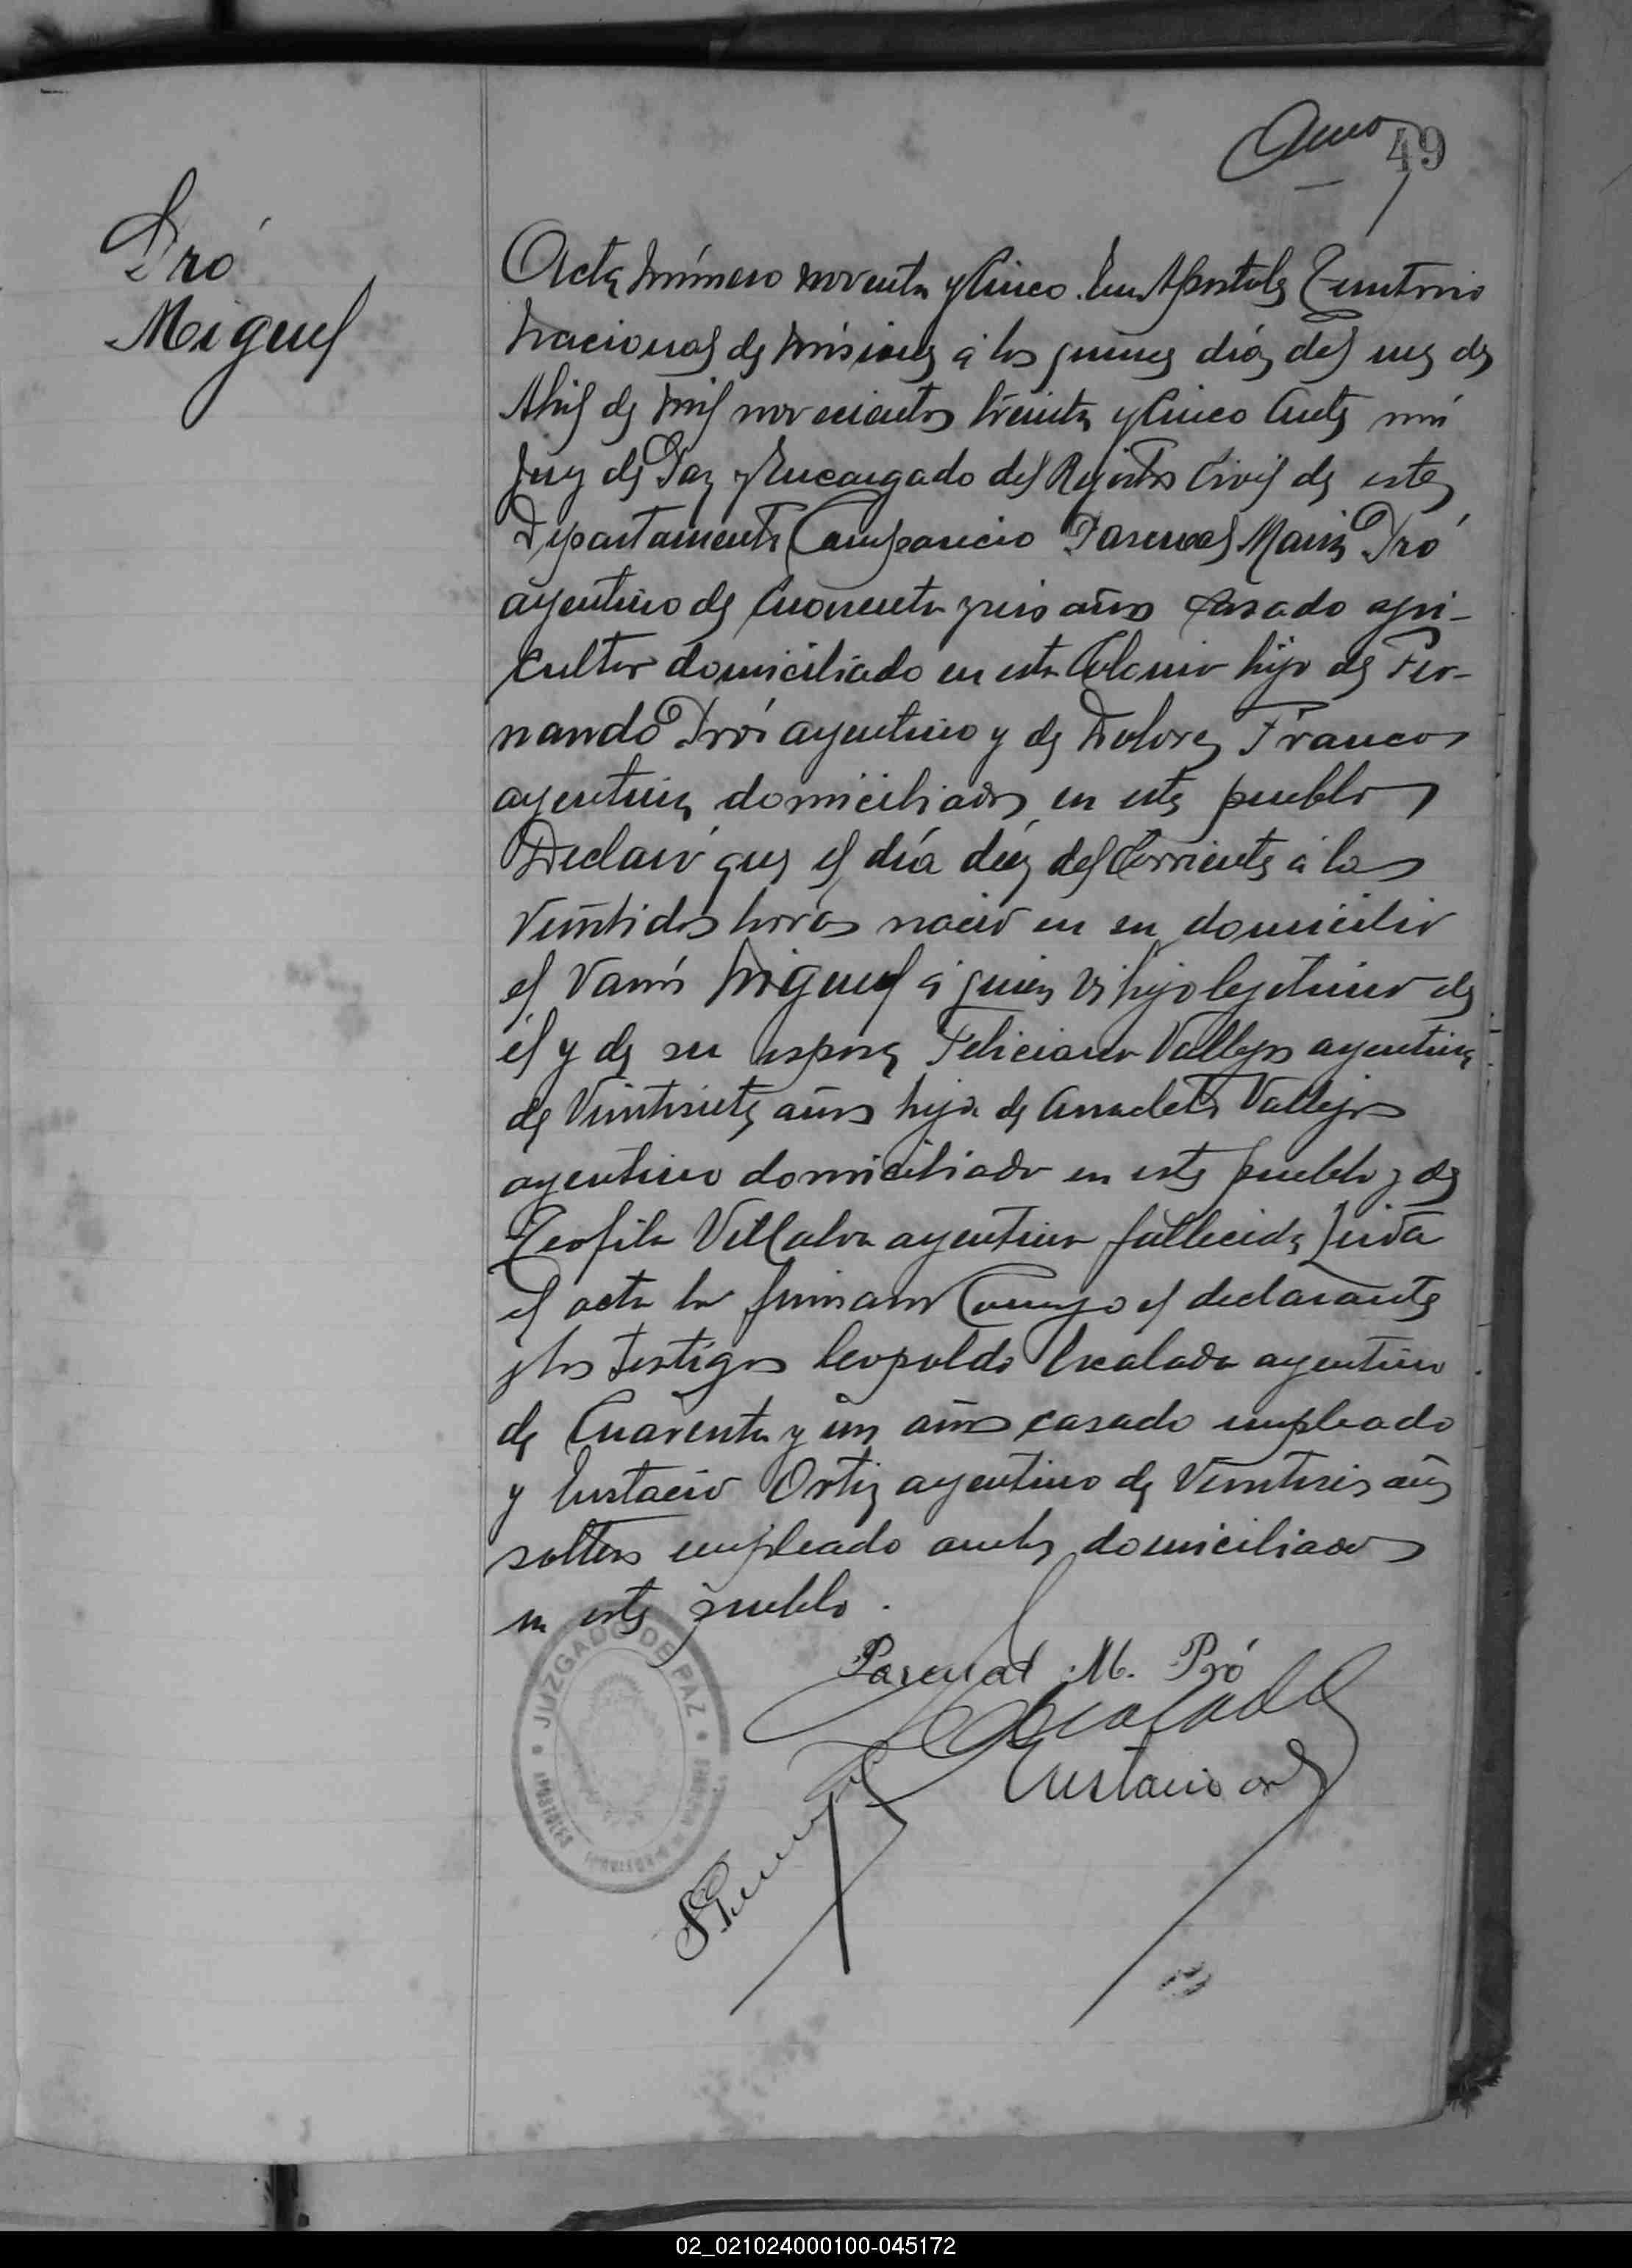 49
Pró
Miguel
Acta número noventa y cinco. En Apostoles Territorio
Nacional de Misiones á los quince días del mes de
Abril de mil novecientos treinta y cinco Ante mi
Juez de Paz y Encargado del Registro Civil de este
Departamento Comparecio Pascual Maria Pró
argentino de cuarenta y seis años casado agri-
cultor domiciliado en esta Colonia hijo de Fer-
nando Pró argentino y de Dolores Franco
argentina domiciliados en este pueblo
Declaró que el día diez del Corriente á las
veintidos horas nació en su domicilio
el varón Miguel á quien es hijo legitimo de
él y de su esposa Feliciana Vallejos argentina
de veintisiete años hija de Anacleto Vallejos
argentino domiciliado en este pueblo y de
Teofila Villalva argentina fallecida Leida
el acta la firmaron Conmigo el declarante
y los testigos Leopoldo Escalada argentino
de Cuarenta y un años casado empleado
y Eustacio Ortiz argentino de Veintiseis años
soltero empleado ambos domiciliados
en este pueblo.
Pascual M. Pró
Escalada
Eustacio
JUZGADO DE PAZ
APOSTOLES
02_021024000100-045172